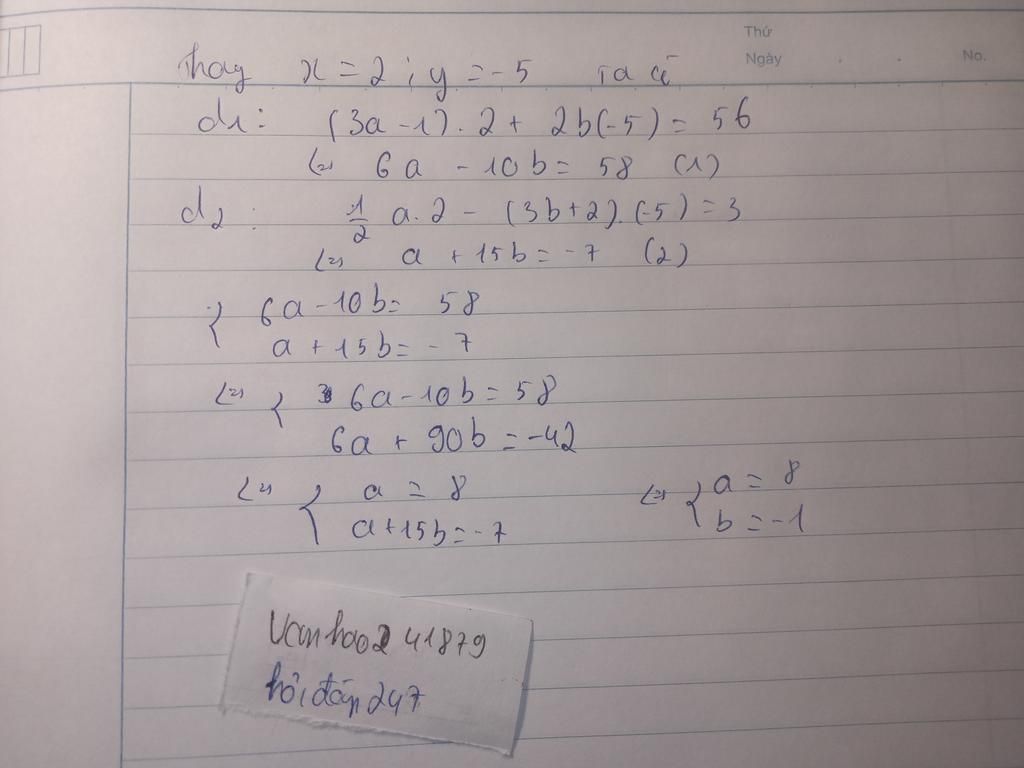 Thứ
Ngày . . No.
Thay x = 2 ; y = -5 Ta có
d1: (3a - 1) . 2 + 2b(-5) = 56
<=> 6a - 10b = 58 (1)
d2: 1/2 a. 2 - (3b+2). (-5) = 3
<=> a + 15b = -7 (2)
{ 6a - 10b = 58
a + 15b = -7
<=> { 6a - 10b = 58
6a + 90b = -42
<=> { a = 8 <=> { a = 8
a + 15b = -7 b = -1
Vanhao2 41879
hỏi đáp 247